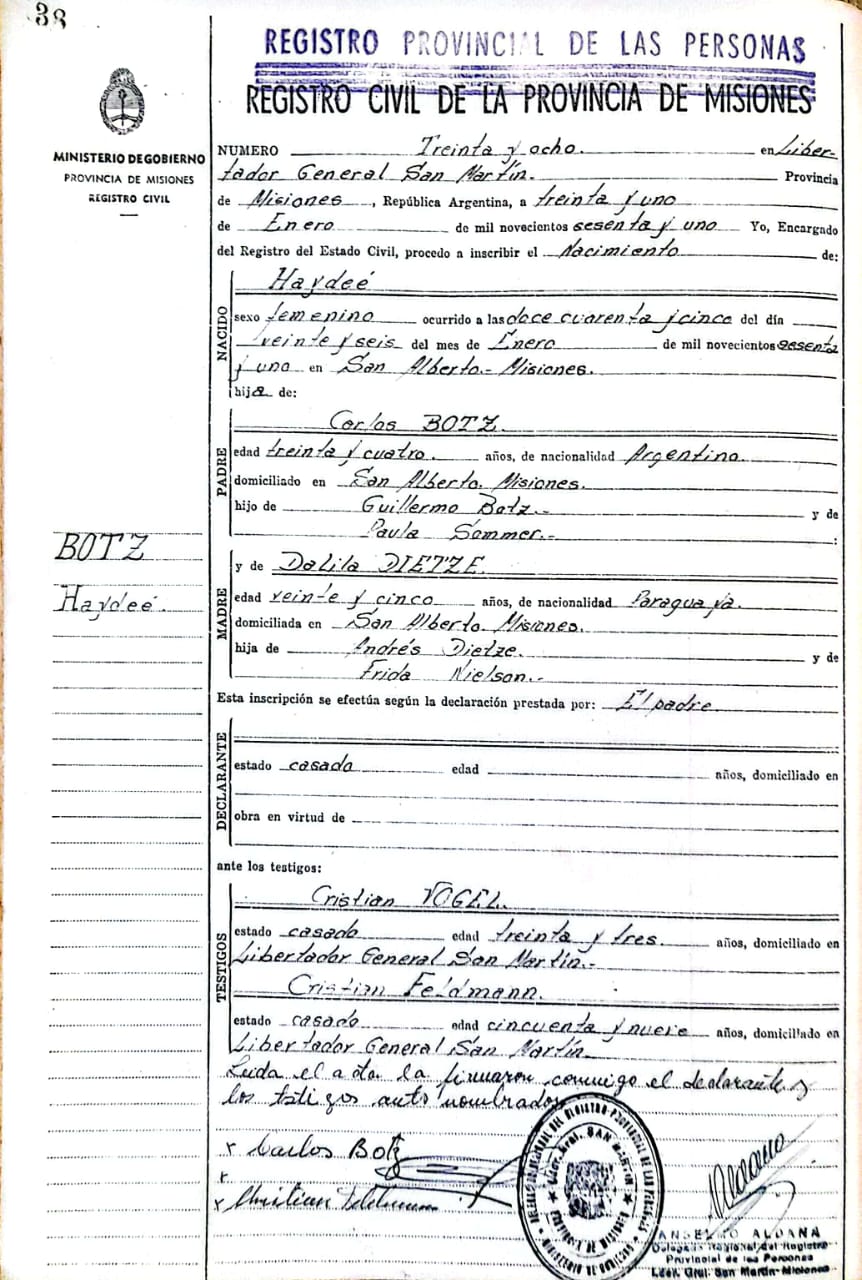 38
REGISTRO PROVINCIAL DE LAS PERSONAS
REGISTRO CIVIL DE LA PROVINCIA DE MISIONES
MINISTERIO DE GOBIERNO
PROVINCIA DE MISIONES
REGISTRO CIVIL
NUMERO Treinta y ocho. en Liber-
tador General San Martín. Provincia
de Misiones, República Argentina, a treinta y uno
de Enero de mil novecientos sesenta y uno Yo, Encargado
del Registro del Estado Civil, procedo a inscribir el Nacimiento de:
NACIDO
Haydeé
sexo femenino ocurrido a las doce cuarenta y cinco del día
veinte y seis del mes de Enero de mil novecientos sesenta
y uno en San Alberto.- Misiones.
hija de:
PADRE
Carlos BOTZ.
edad treinta y cuatro. años, de nacionalidad Argentino.
domiciliado en San Alberto. Misiones.
hijo de Guillermo Botz.- y de
Paula Sommer.- :
BOTZ
Haydeé.
MADRE
y de Dalila DIETZE.
edad veinte y cinco años, de nacionalidad Paraguaya.
domiciliada en San Alberto. Misiones.
hija de Andrés Dietze. y de
Frida Nielson.-
Esta inscripción se efectúa según la declaración prestada por: El padre.
DECLARANTE
estado casado edad años, domiciliado en
obra en virtud de
ante los testigos:
TESTIGOS
Cristian VOGEL.
estado casado edad treinta y tres. años, domiciliado en
Libertador General San Martín.-
Cristian Feldmann.
estado casado edad cincuenta y nueve años, domiciliado en
Libertador General San Martín.
Leida el acta la firmaron conmigo el declarante y
los testigos antes nombrados
x Carlos Botz
x
x Christian Feldmann
Aldana
ANSELMO ALDANA
Delegado Regional del Registro
Provincial de las Personas
Ldor. Gral. San Martín-Misiones